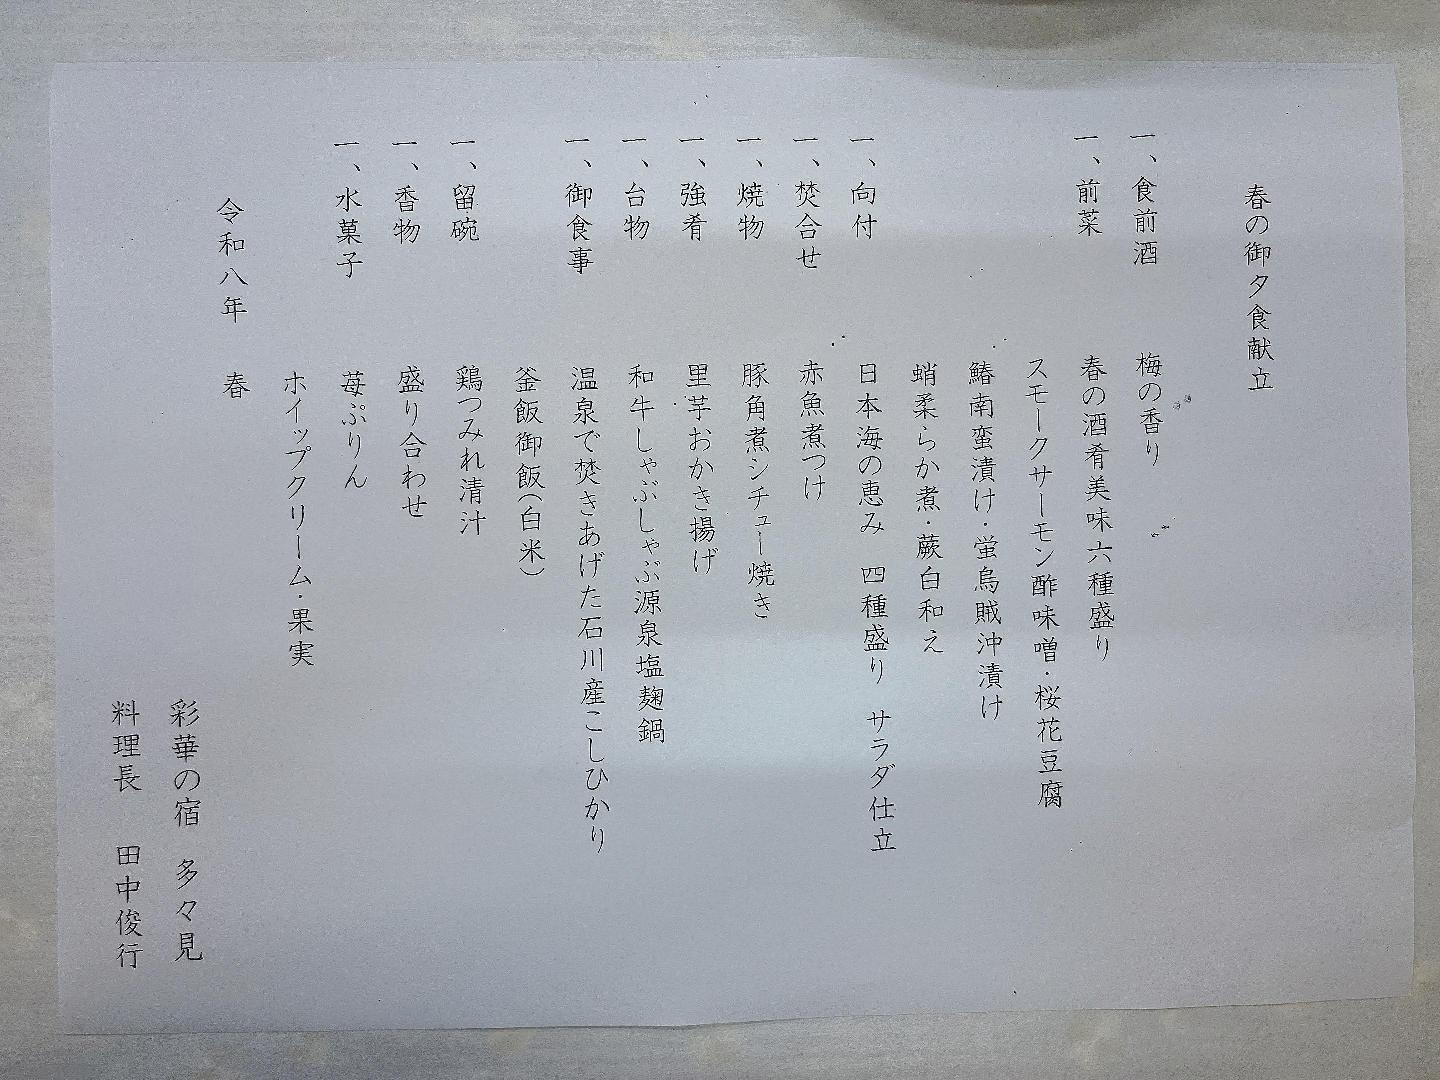 春の御夕食献立
一、食前酒　梅の香り
一、前菜　春の酒肴美味六種盛り
スモークサーモン酢味噌・桜花豆腐
鰆南蛮漬け・蛍烏賊沖漬け
蛸柔らか煮・蕨白和え
一、向付　日本海の恵み　四種盛り　サラダ仕立
一、焚合せ　赤魚煮つけ
一、焼物　豚角煮シチュー焼き
一、強肴　里芋おかき揚げ
一、台物　和牛しゃぶしゃぶ源泉塩麹鍋
一、御食事　温泉で焚きあげた石川産こしひかり
釜飯御飯（白米）
一、留碗　鶏つみれ清汁
一、香物　盛り合わせ
一、水菓子　苺ぷりん
ホイップクリーム・果実
令和八年　春
彩華の宿　多々見
料理長　田中俊行